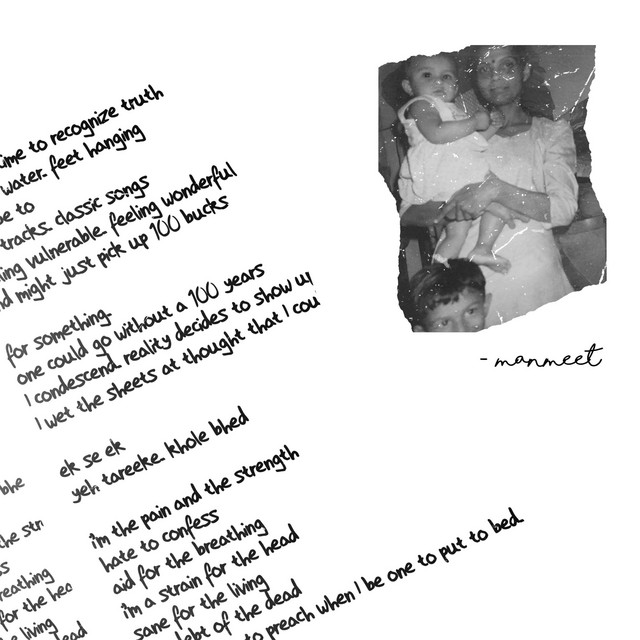 time to recognize truth
water. feet hanging
be to
tracks. classic songs
vulnerable. feeling wonderful
might just pick up 100 bucks
for something.
one could go without a 100 years
I condescend. reality decides to show
I wet the sheets at thought that I
ek se ek
yeh tareeke. khole bhed
i'm the pain and the strength
hate to confess
aid for the breathing
i'm a strain for the head
sane for the living
debt of the dead
to preach when I be one to put to bed.
bhe
the
for the
living
- manmeet